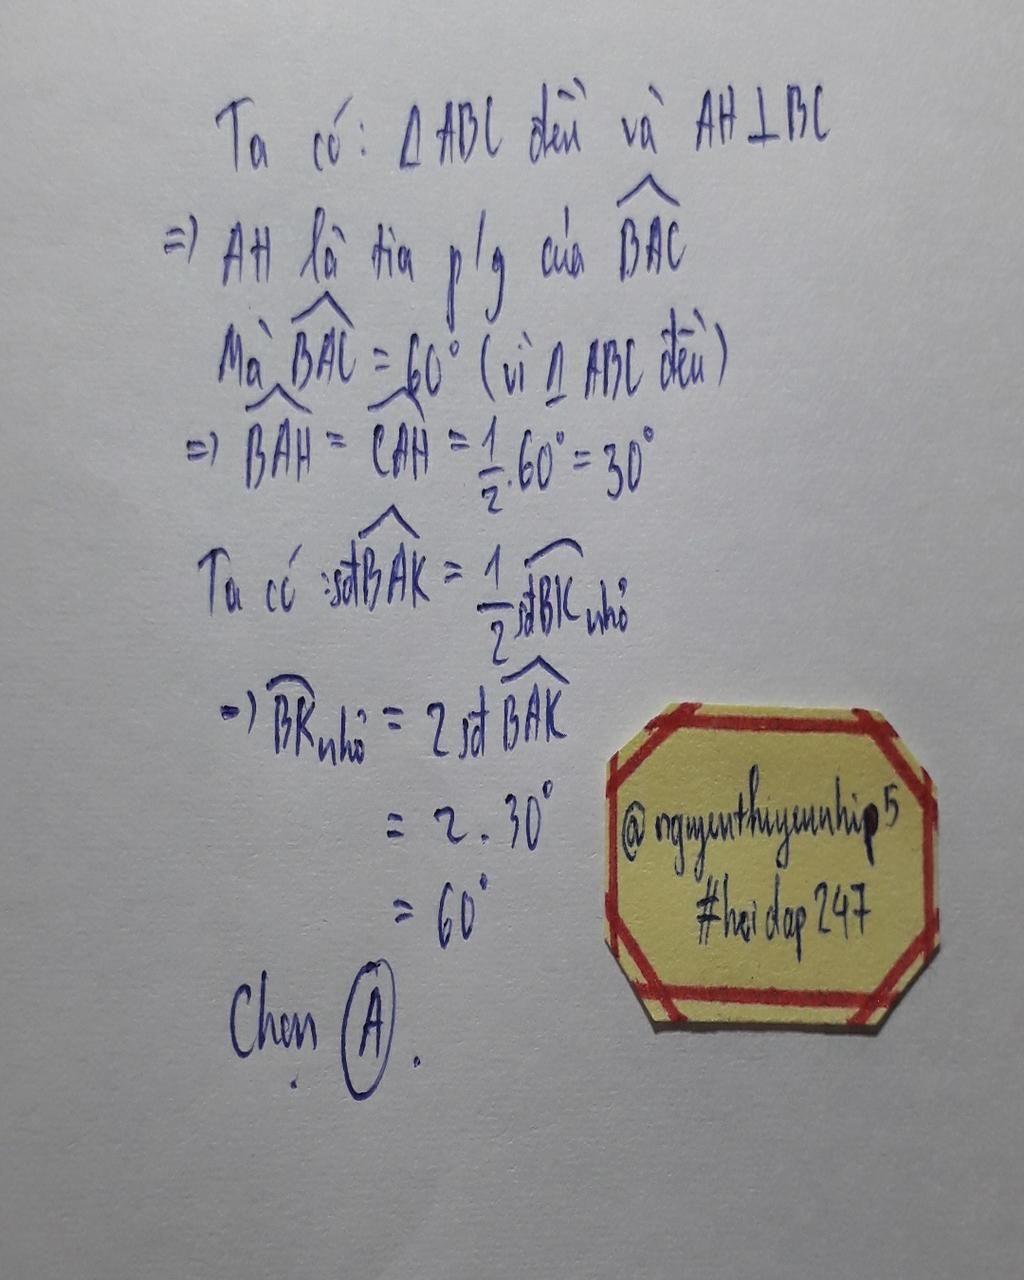 Ta có: Δ ABC đều và AH ⊥ BC
=> AH là tia p/g của \widehat{BAC}
Mà \widehat{BAC} = 60° (vì Δ ABC đều)
=> \widehat{BAH} = \widehat{CAH} = \frac{1}{2}.60° = 30°
Ta có :sđ\widehat{BAK} = \frac{1}{2}sđ\overset{\frown}{BK} nhỏ
=> \overset{\frown}{BK} nhỏ = 2 sđ \widehat{BAK}
= 2 . 30°
= 60°
Chọn A .
@nguyenthiyeunhip5
#hoidap247